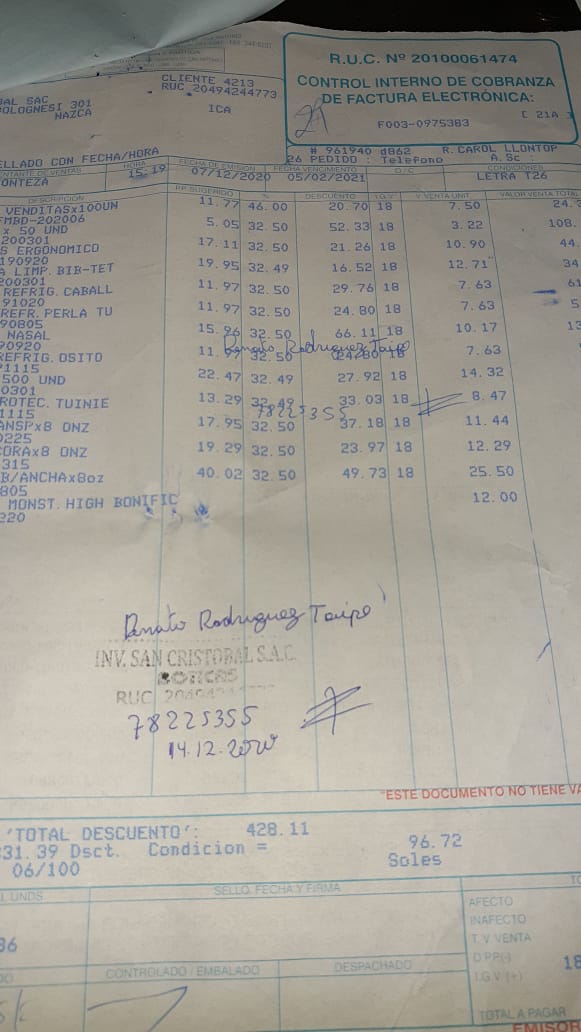 R.U.C. Nº 20100061474
CONTROL INTERNO DE COBRANZA
DE FACTURA ELECTRÓNICA:
F003-0975383
[ 21A ]
CLIENTE 4213
RUC 20494244773
BAL SAC
BOLOGNESI 301
NAZCA
ICA
# 961940 d862 R. CAROL LLONTOP
26 PEDIDO : Telefono A.Sc :
ELLADO CON FECHA/HORA
HORA
FECHA DE EMISIÓN
FECHA VENCIMIENTO
O/C
CONDICIONES
ONTEZA 15.19 07/12/2020 05/02/2021 LETRA T26
DESCRIPCIÓN P.P. SUGERIDO % DESCUENTO I.G.V. V. VENTA UNIT. VALOR VENTA TOTAL
VENDITASx100UN 11.77 46.00 20.70 18 7.50 24.3
FMBD-202006
x 50 UND 5.05 32.50 52.33 18 3.22 108.
200301
S ERGONOMICO 17.11 32.50 21.26 18 10.90 44.
190920
A LIMP. BIB-TET 19.95 32.49 16.52 18 12.71 34
200301
REFRIG. CABALL 11.97 32.50 29.76 18 7.63 61
91020
REFR. PERLA TU 11.97 32.50 24.80 18 7.63 5
90805
NASAL 15.96 32.50 66.11 18 10.17 13
90920
REFRIG. OSITO 11.97 32.50 24.80 18 7.63
Renato Rodriguez Taipe
P1115
500 UND 22.47 32.49 27.92 18 14.32
0301
ROTEC. TUINIE 13.29 32.49 33.03 18 8.47
78225355
1115
ANSPx8 ONZ 17.95 32.50 37.18 18 11.44
0225
CORAx8 ONZ 19.29 32.50 23.97 18 12.29
315
B/ANCHAx8oz 40.02 32.50 49.73 18 25.50
805
MONST. HIGH BONIFIC 12.00
220
Renato Rodriguez Taipe
INV. SAN CRISTOBAL S.A.C.
BOTICAS
RUC 20494244
78225355
14.12.2020
"ESTE DOCUMENTO NO TIENE VA
'TOTAL DESCUENTO': 428.11
831.39 Dsct. Condicion = 96.72
06/100 Soles
L UNDS
SELLO, FECHA Y FIRMA
AFECTO
INAFECTO
T. V VENTA
D.PP(-)
I.G.V.(+)
TOTAL A PAGAR
36
18
CONTROLADO / EMBALADO
DESPACHADO
EMISOR